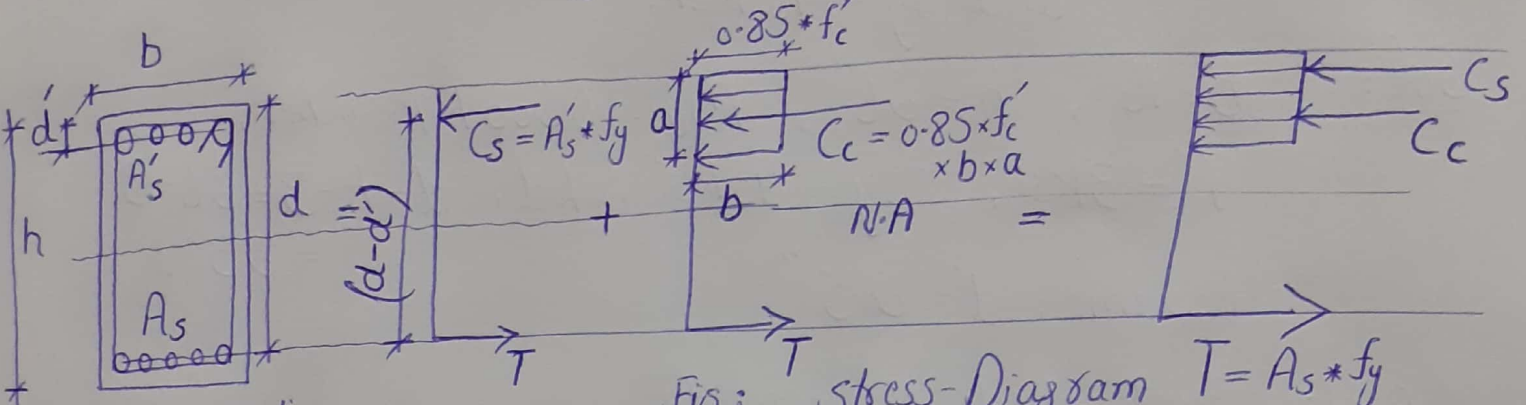 b
d'
A's
h
d
As
=
(d-d')
Cs = A's * fy
T
+
0.85 * f'c
a
Cc = 0.85 × f'c
× b × a
b
N.A
T
=
Cs
Cc
T = As * fy
Fig: stress-Diagram